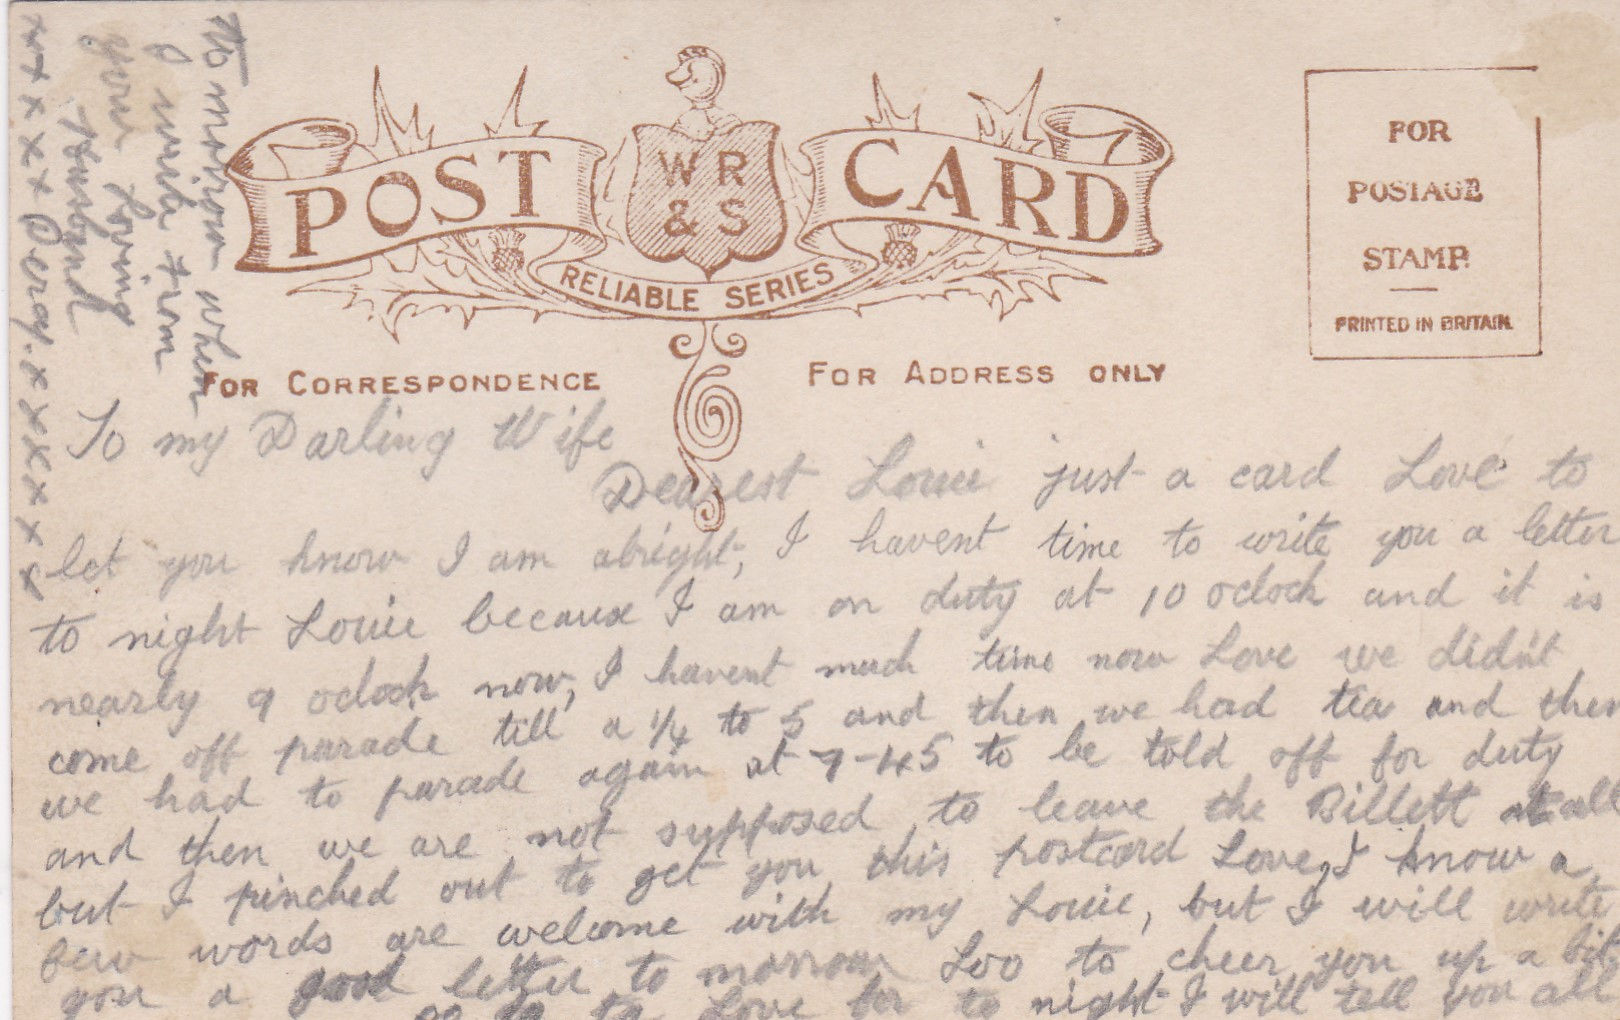 POST CARD
W R
& S
RELIABLE SERIES
FOR
POSTAGE
STAMP.
PRINTED IN BRITAIN.
FOR CORRESPONDENCE
FOR ADDRESS ONLY
To my Darling Wife
Dearest Louie just a card Love to
let you know I am alright, I havent time to write you a letter
to night Louie because I am on duty at 10 oclock and it is
nearly 9 oclock now, I havent much time now Love we didn't
come off parade till a 1/4 to 5 and then we had tea and then
we had to parade again at 7-45 to be told off for duty
and then we are not supposed to leave the Billett at all
but I pinched out to get you this postcard Love, I know a
few words are welcome with my Louie, but I will write
you a good letter to morrow Loo to cheer you up a bit
to Love for to night I will tell you all
To morrow when
I write from
your Loving
Husband
x x x x x Percy. x x x x x x x